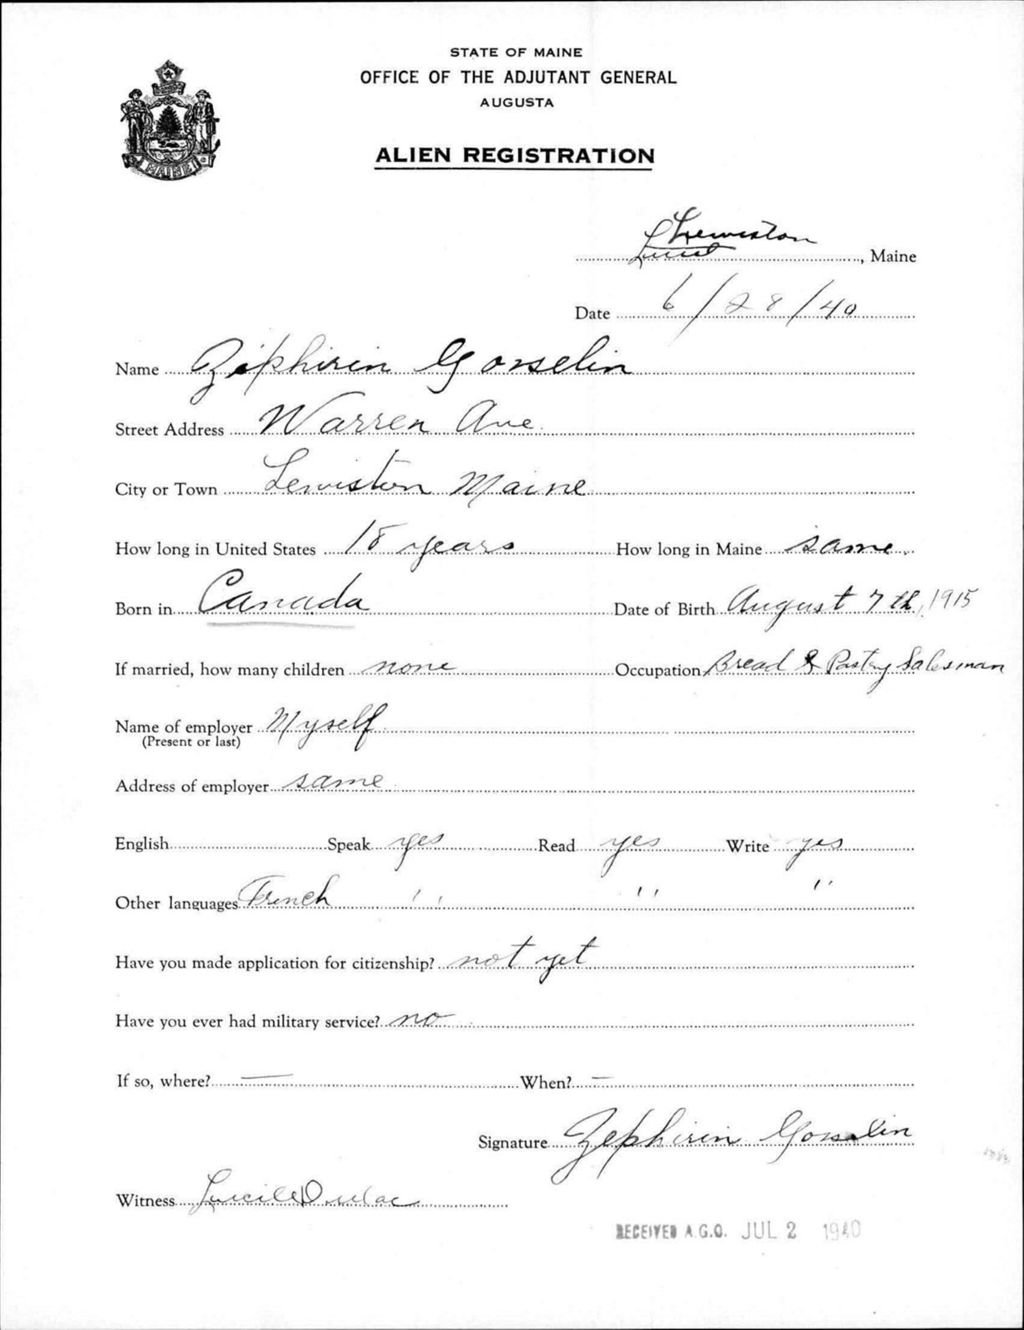 STATE OF MAINE
OFFICE OF THE ADJUTANT GENERAL
AUGUSTA
ALIEN REGISTRATION
MAINE
Lewiston, Maine
Date 6/28/40
Name Zéphirin Gosselin
Street Address Warren Ave.
City or Town Lewiston Maine
How long in United States 18 years How long in Maine same
Born in Canada Date of Birth August 7th, 1915
If married, how many children none Occupation Bread & Pastry Salesman
Name of employer Myself
(Present or last)
Address of employer same
English Speak yes Read yes Write yes
Other languages French " " "
Have you made application for citizenship? not yet
Have you ever had military service? no
If so, where? — When? —
Signature Zephirin Gosselin
Witness Lucille Dulac
RECEIVED A.G.O. JUL 2 1940